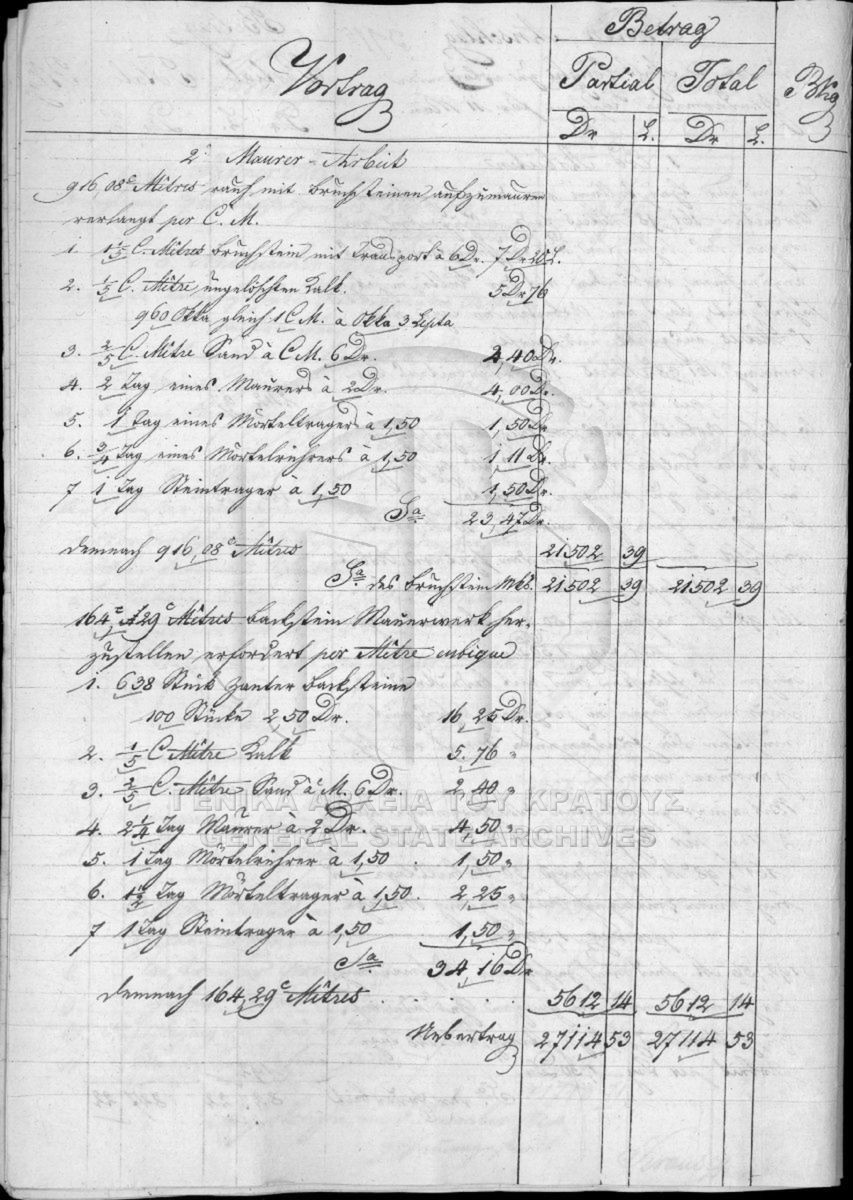 Betrag
Vortrag Partial Total Bthg
Dr L. Dr L.
2. Maurer-Arbeit
916,08c Mêtres rauh mit Bruchsteinen aufzumauern
verlangt per C. M.
1. 1 1/5 C. Mêtres Bruchstein mit Transport à 6 Dr. 7 Dr 20 L.
2. 1/5 C. Mêtre ungelöschten Kalk. 5 Dr 76
960 Okka gleich 1 C M. à Okka 3 Lepta
3. 2/5 C. Mêtre Sand à C M. 6 Dr. 2,40 Dr.
4. 2 Tag eines Maurers à 2 Dr. 4,00 Dr.
5. 1 Tag eines Mörteltragers à 1,50 1,50 Dr
6. 3/4 Tag eines Mörtelrührers à 1,50 1 11 Dr.
7 1 Tag Steintrager à 1,50 1,50 Dr.
Sa. 23,47 Dr.
demnach 916,08c Mêtres 21502 39
Sa. des Bruchstein Mks. 21502 39 21502 39
164, 29c Mêtres Backstein Mauerwerk her-
zustellen erfordert per Mêtre cubique
1. 638 Stück Zanter Backsteine
100 Stücke 2,50 Dr. 16,25 Dr.
2. 1/5 C Mêtre Kalk 5.76 "
3. 2/5 C. Mêtre Sand à M. 6 Dr. 2,40 "
4. 2 1/4 Tag Maurer à 2 Dr. 4,50 "
5. 1 Tag Mörtelrührer à 1,50 . 1,50 "
6. 1 1/2 Tag Mörteltrager à 1,50 . 2,25 "
7 1 Tag Steintrager à 1,50 1,50 "
Sa. 34,16 Dr
demnach 164,29c Mêtres . . . . . 5612 14 5612 14
Uebertrag 27114 53 27114 53
ΓΕΝΙΚΑ ΑΡΧΕΙΑ ΤΟΥ ΚΡΑΤΟΥΣ
GENERAL STATE ARCHIVES